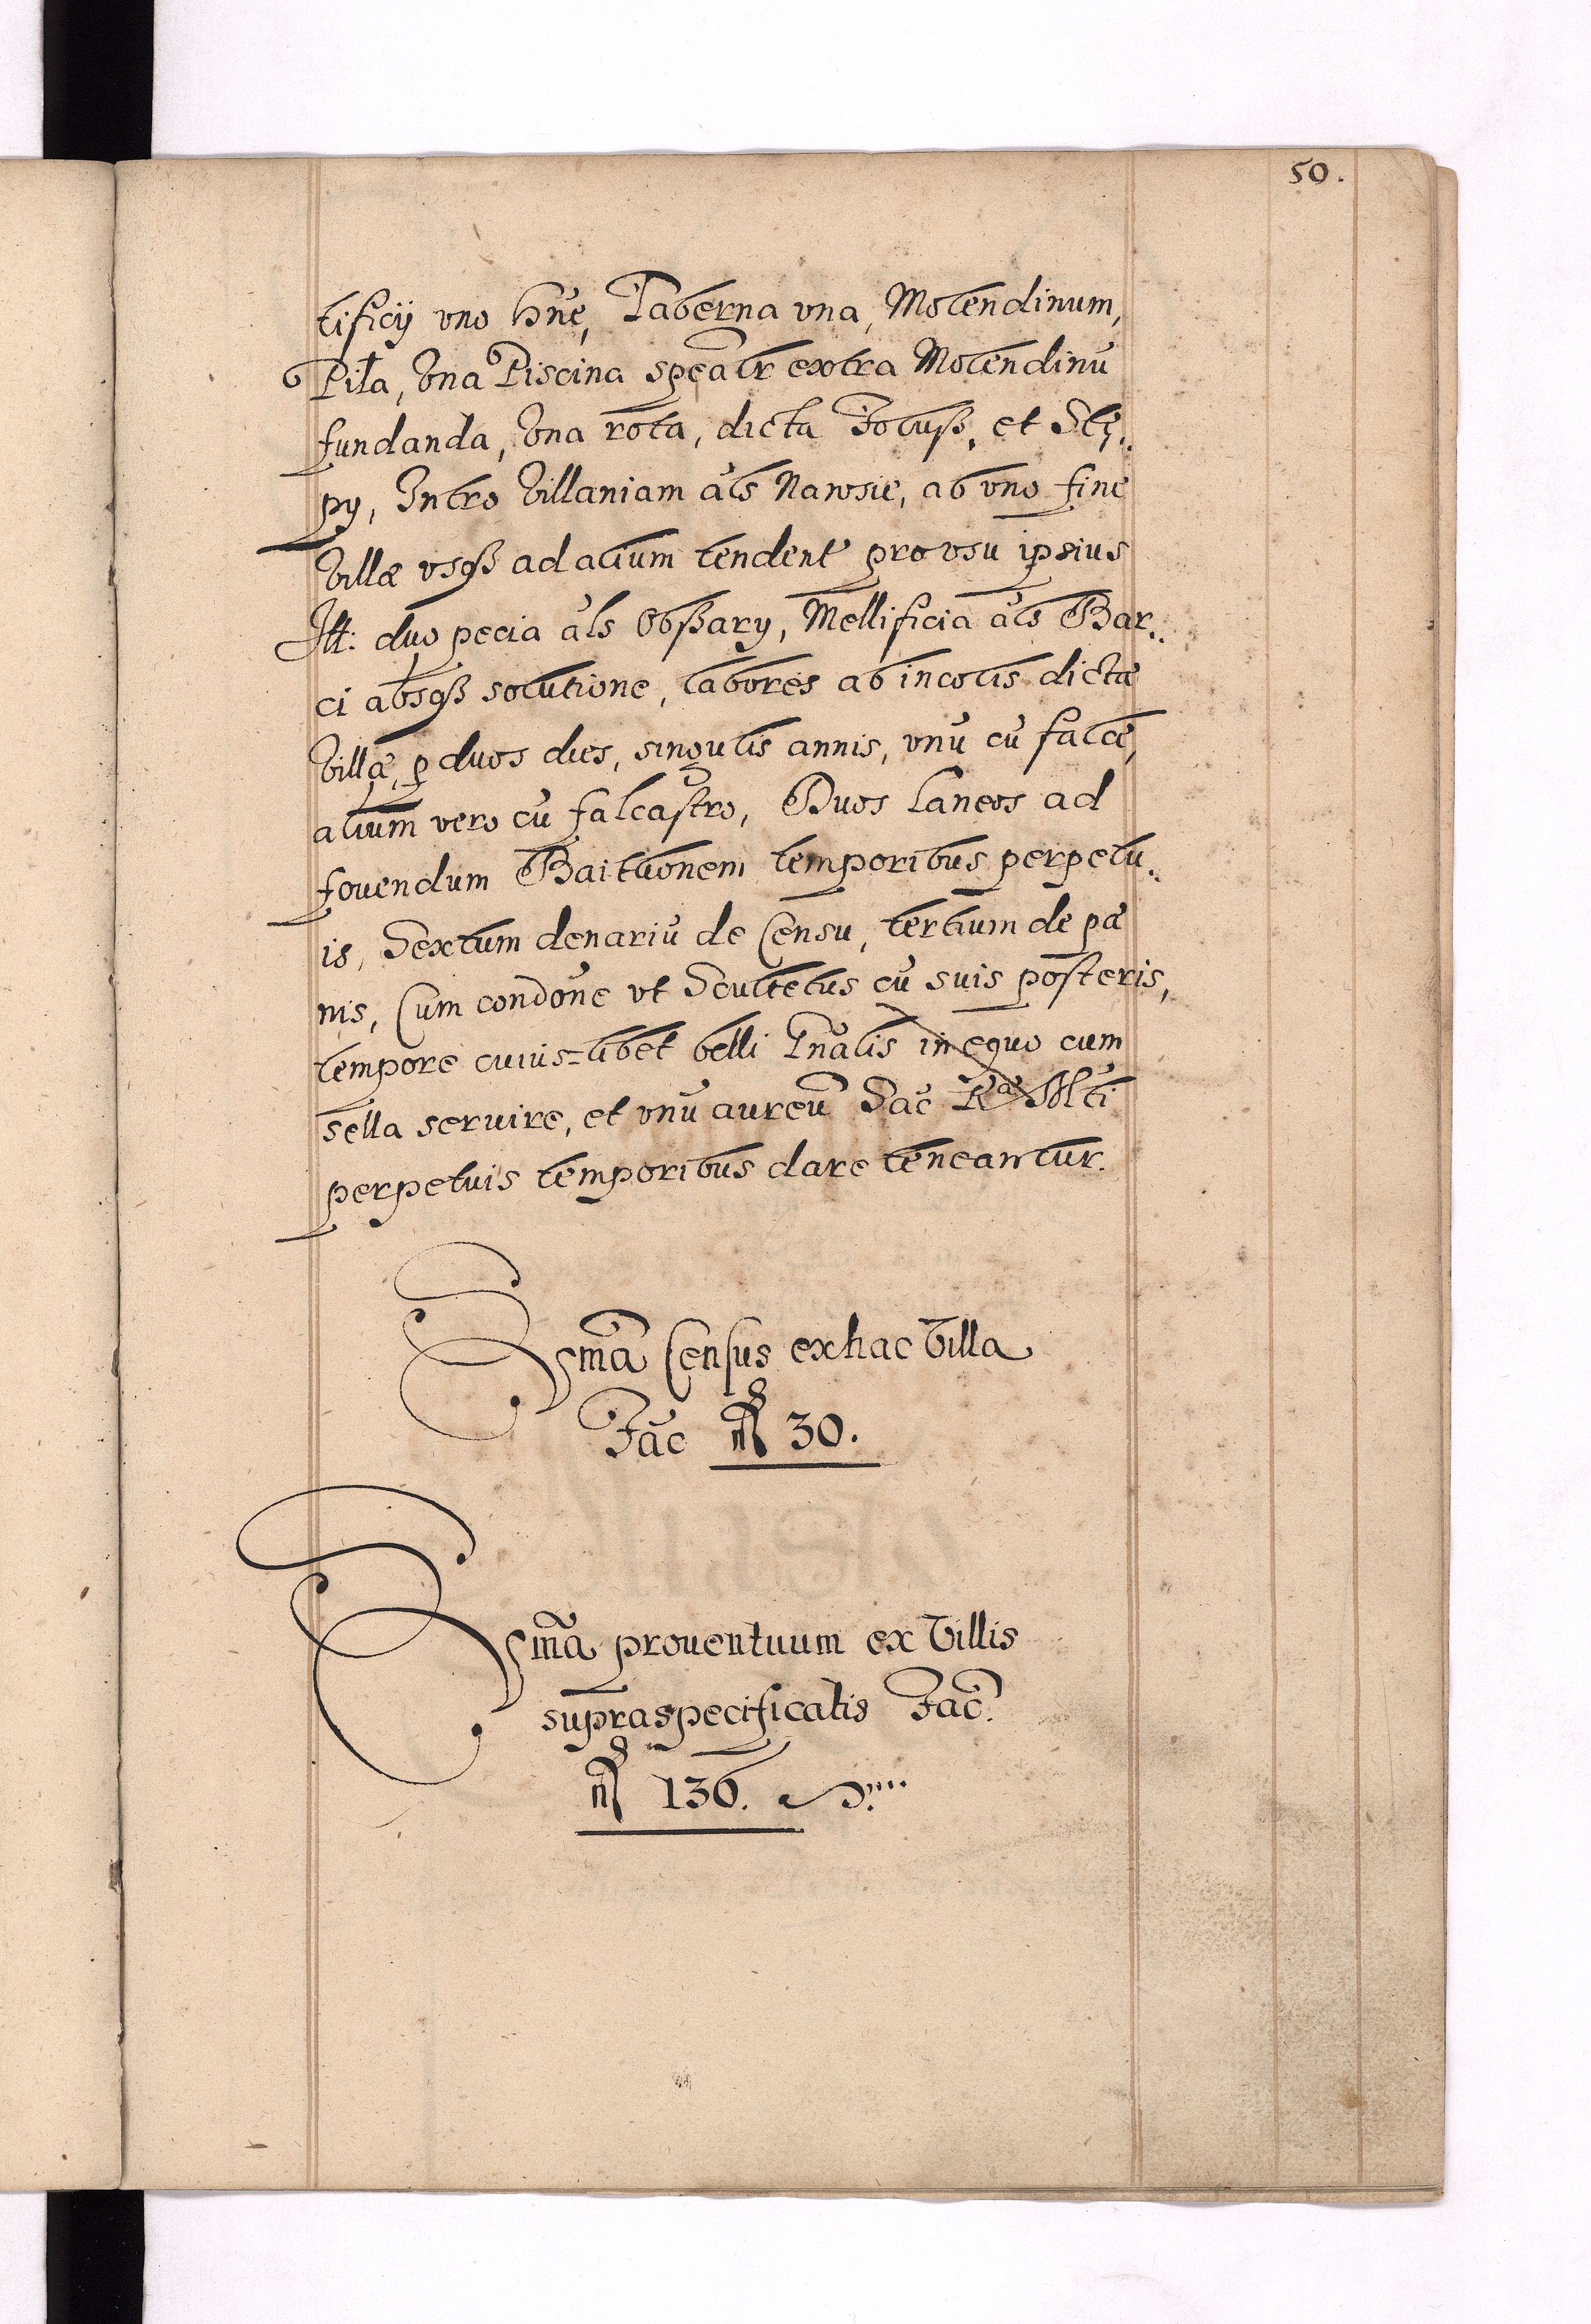 50.
tificij vno hn̄e, Taberna vna, Molendinum,
Piła, Vna Piscina spēatr extra Molendinū
fundanda, Vna rota, dicta Foluß, et Stę„
py, Intro Villaniam ałs Nawsie, ab vno fine
Villæ vsqß ad alium tendent pro vsu ipsius
Itt: duo pecia ałs Obßary, Mellificia ałs Bar„
ci absqß solutione, labores ab incolis dictæ
Villæ, p duos dies, singulis annis, vnū cū falce,
alium vero cū falcastro, Duos Laneos ad
fouendum Baitłionem temporibus perpetu„
is, Sextum denariū de Censu, tertium de pæ
nis, Cum condōne vt Scultetus cū suis posteris,
tempore cuius=libet belli Gn̄alis in equo cum
sella seruire, et vnū aureū Sac Rᵃᵉ Mti
perpetuis temporibus dare teneantur.
Sm̄a Census ex hac Villa
Fac̄ 30.
Sm̄a prouentuum ex Villis
supraspecificatis Fac̄.
136.